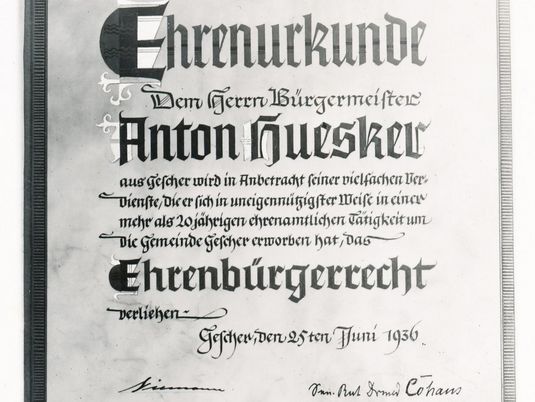 Ehrenurkunde
Dem Herrn Bürgermeister
Anton Huesker
aus Gescher wird in Anbetracht seiner vielfachen Ver-
dienste, die er sich in uneigennützigster Weise in einer
mehr als 20jährigen ehrenamtlichen Tätigkeit um
die Gemeinde Gescher erworben hat, das
Ehrenbürgerrecht
verliehen.
Gescher, den 25ten Juni 1936.
Niemann
San. Rat Dr med Cohaus